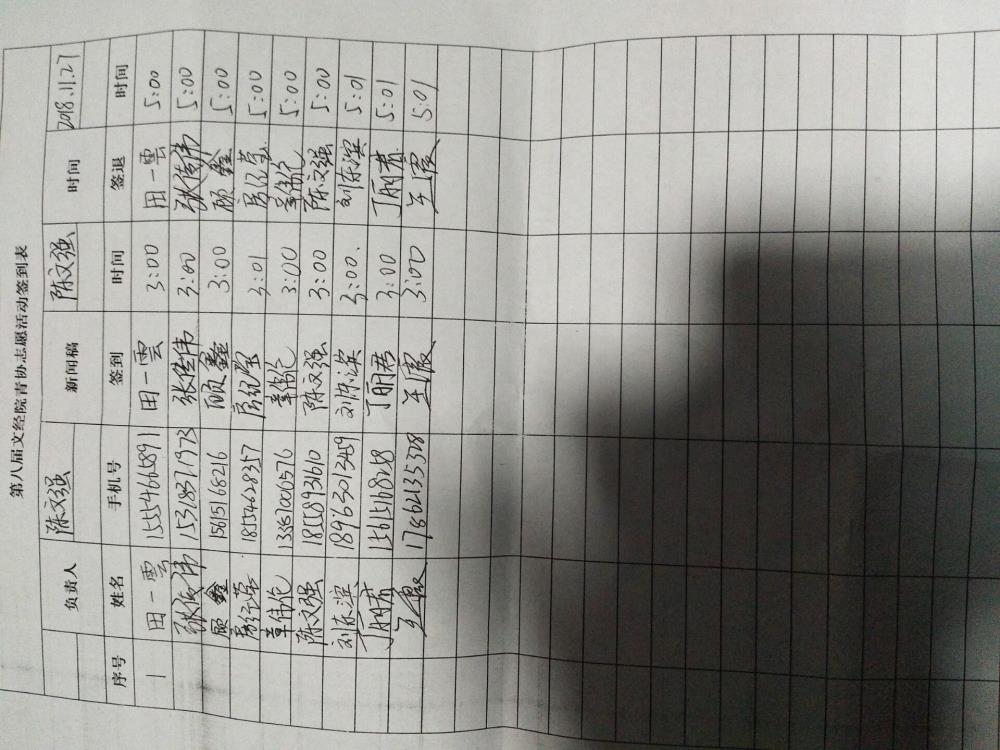 第八届文经院青协志愿活动签到表
负责人 陈文强 新闻稿 陈文强 时间 2018.11.27
序号 姓名 手机号 签到 时间 签退 时间
1 田一雲 15554665891 田一雲 3:00 田一雲 5:00
张佳伟 15318371973 张佳伟 3:00 张佳伟 5:00
顾鑫 15615168216 顾鑫 3:00 顾鑫 5:00
18554628357 3:01 5:00
章伟伦 13361000576 章伟伦 3:00 章伟伦 5:00
陈文强 18558931610 陈文强 3:00 陈文强 5:00
刘东滨 18963013459 刘东滨 3:00. 刘东滨 5:01
丁丽君 15615168258 丁丽君 3:00 丁丽君 5:01
王霞 17862135378 王霞 3:00 王霞 5:01